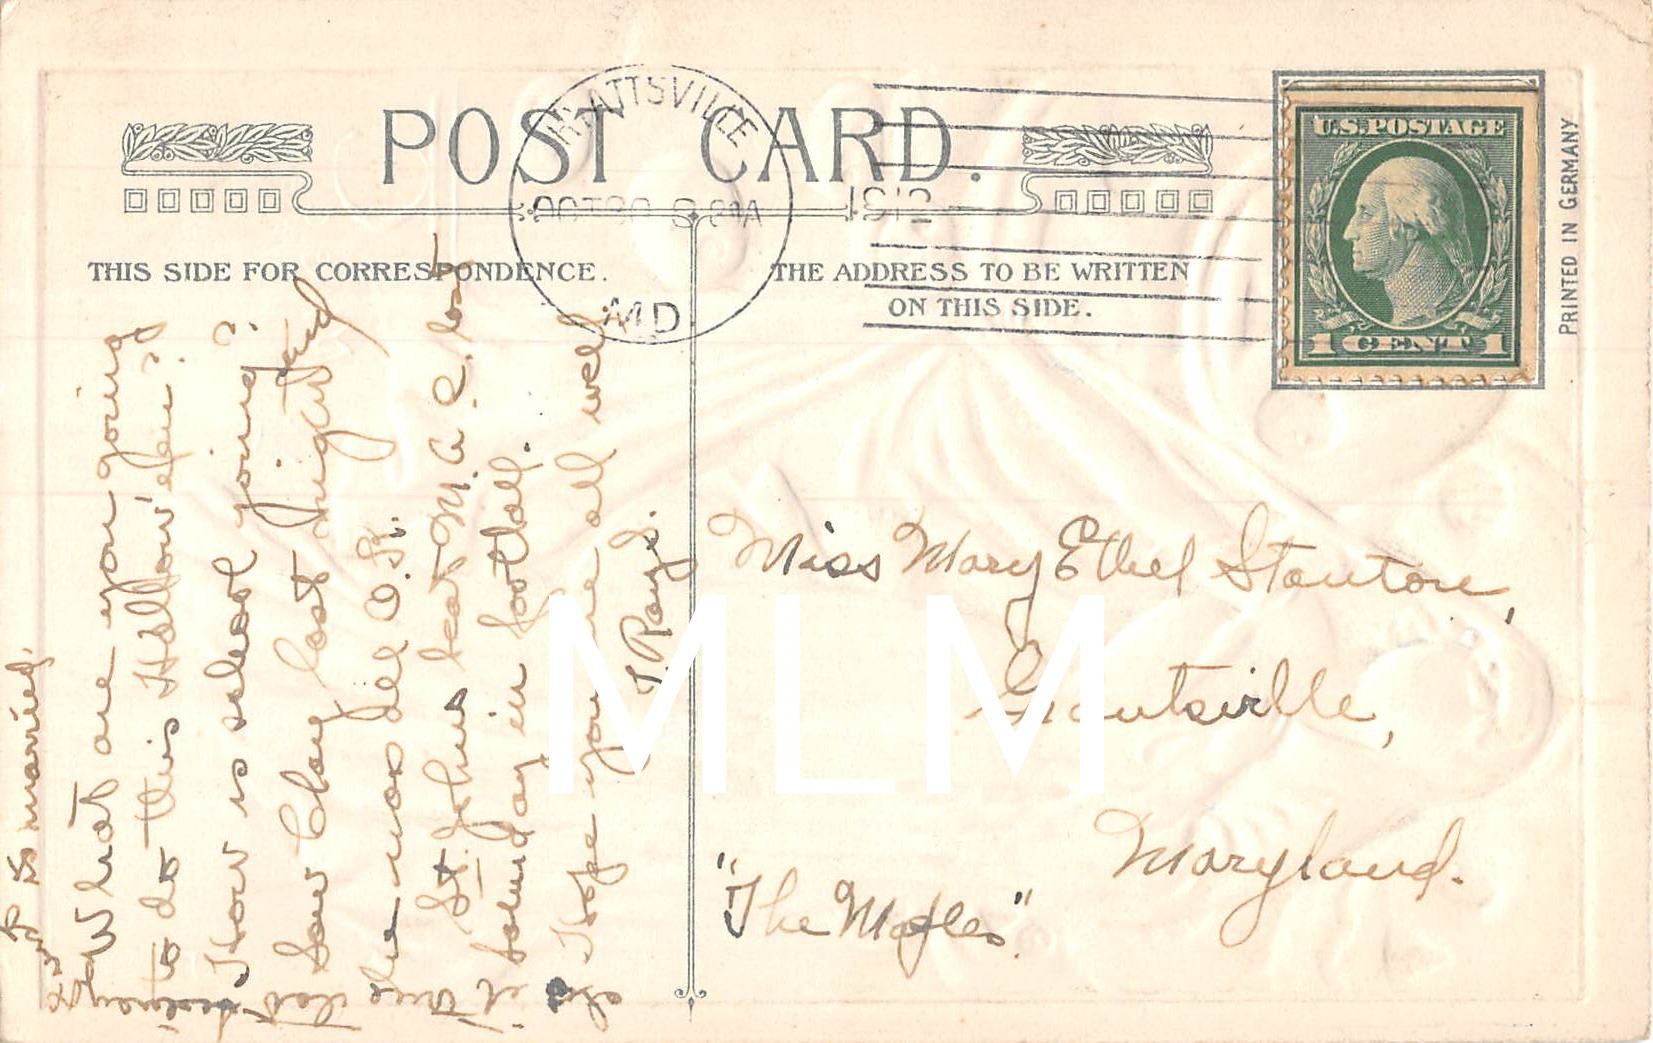 POST CARD.
THIS SIDE FOR CORRESPONDENCE.
THE ADDRESS TO BE WRITTEN
ON THIS SIDE.
ATTSVILLE
OCT 30
1912
MD.
U.S. POSTAGE
1 CENT 1
PRINTED IN GERMANY
What are you going
to do this Hallow'een?
How is school going?
Saw Clay last night and
he was all O.K.
St. Johns beat M.A.C. bad
Saturday in football.
Hope you are all well
T. Ray S.
is it true that
is married.
Miss Mary Ethel Stanton,
Grantsville,
Maryland.
"The Maples"
MLM